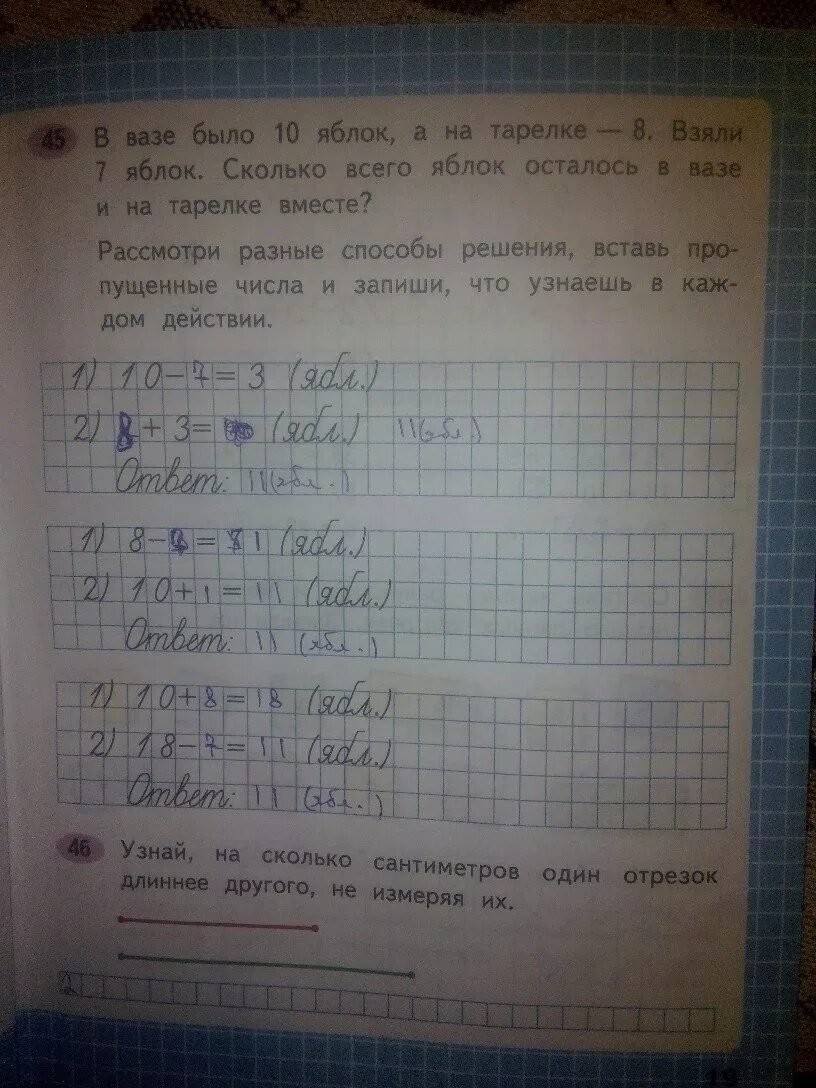 45 В вазе было 10 яблок, а на тарелке — 8. Взяли
7 яблок. Сколько всего яблок осталось в вазе
и на тарелке вместе?
Рассмотри разные способы решения, вставь про-
пущенные числа и запиши, что узнаешь в каж-
дом действии.
1) 10 – 7 = 3 (ябл.)
2) 8 + 3 = (ябл.) 11 (ябл.)
Ответ: 11 (ябл.)
1) 8 – = 1 (ябл.)
2) 10 + 1 = 11 (ябл.)
Ответ: 11 (ябл.)
1) 10 + 8 = 18 (ябл.)
2) 18 – 7 = 11 (ябл.)
Ответ: 11 (ябл.)
46 Узнай, на сколько сантиметров один отрезок
длиннее другого, не измеряя их.